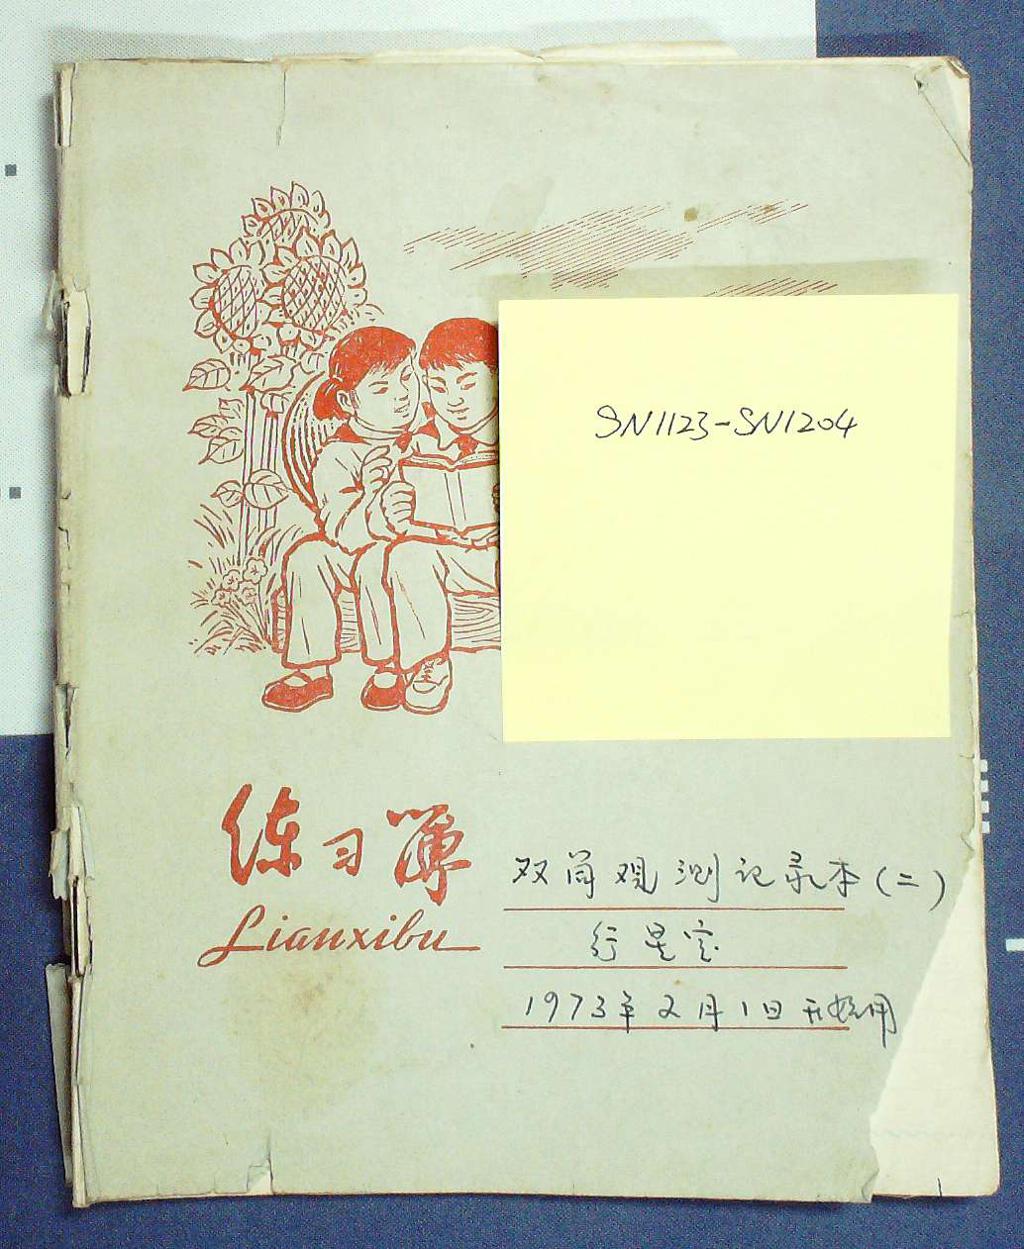 SN1123-SN1204
练习簿
Lianxibu
双筒观测记录本(二)
行星室
1973年2月1日开始用